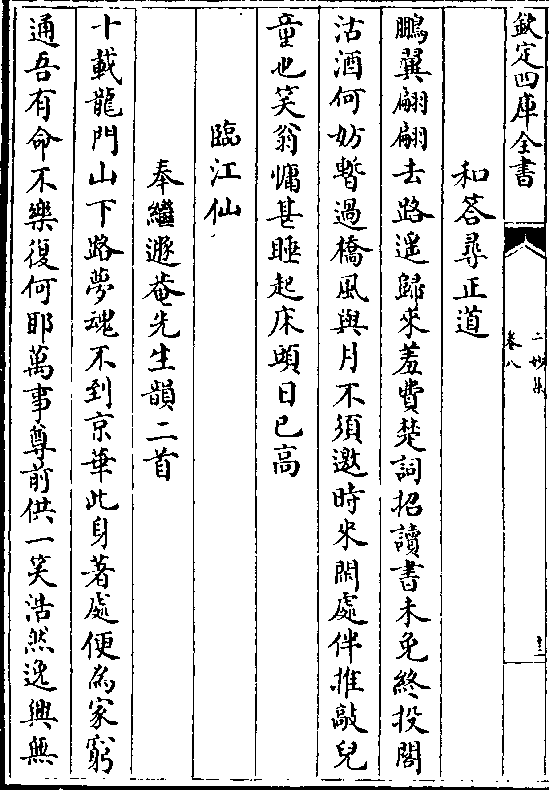 欽定四庫全書
二妙集
卷八
十三
和答尋正道
鵬翼翩翩去路遥歸來羞費楚詞招讀書未免終投閣
沽酒何妨暫過橋風與月不須邀時來閑處伴推敲兒
童也笑翁慵甚睡起床頭日已高
臨江仙
奉繼遯菴先生韻二首
十載龍門山下路夢魂不到京華此身著處便為家窮
通吾有命不樂復何耶萬事尊前供一笑浩然逸興無